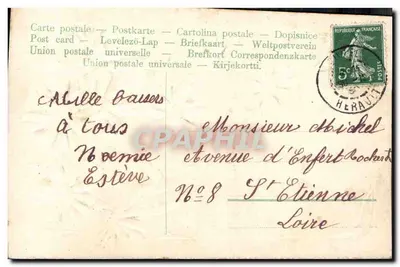 Carte postale – Postkarte – Cartolina postale – Dopisnice
Post card – Lovelező-Lap – Briefkaart – Weltpostverein
Union postale universelle – Brefkort Correspondenzkarte
Union postale universale – Kirjekortti.
REPUBLIQUE FRANÇAISE
POSTES
5c
HERAULT
Mille baisers
à tous
Noemie
Estève
Monsieur Michel
Avenue d'Enfert Rochereau
N° 8 St Etienne
Loire